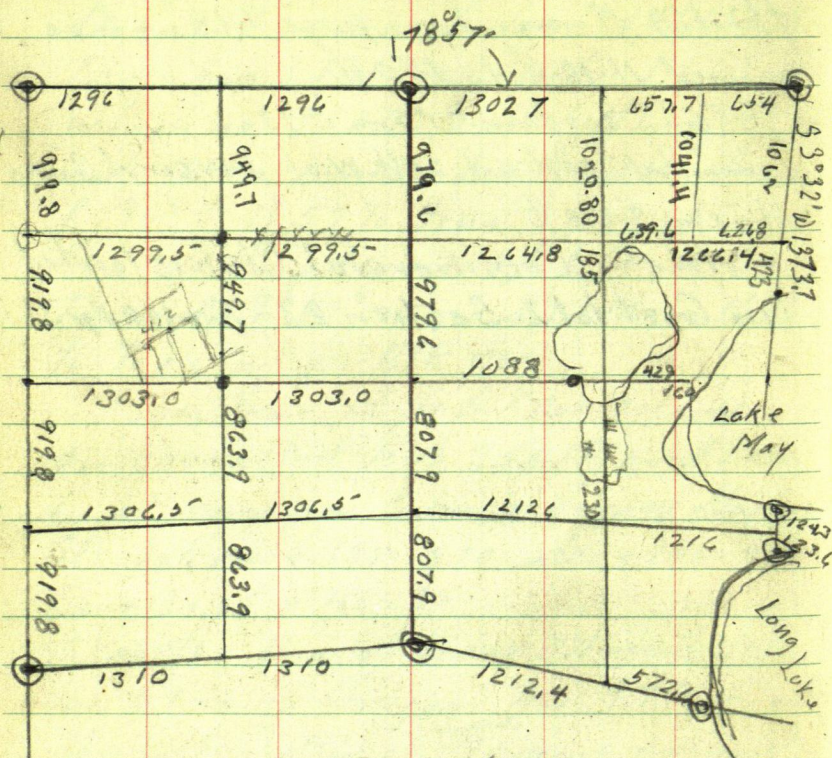 178°57'
1296 1296 1302 7 657.7 654
919.8 949.7 979.6 1020.80 1041.4 1062 S 3°32' W 1973.7
1299.5 1299.5 1264.8 639.6 626.8
1266.4
919.8 949.7 979.6 185 473
1303.0 1303.0 1088 429 160
919.8 863.9 807.9 230 Lake
May
1306.5 1306.5 1212 6 1216 1243
133.6
919.8 863.9 807.9 Long Lake
1310 1310 1212.4